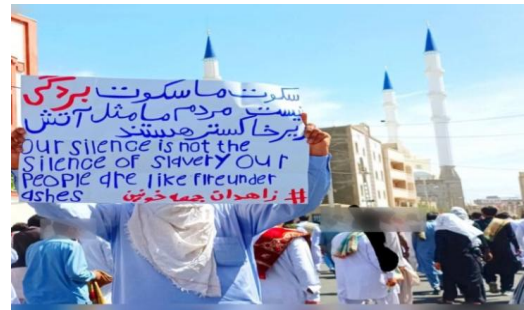 سکوت ما سکوت بردگی
نیست مردم ما مثل آتش
زیر خاکستر هستند
our silence is not the
silence of slavery our
people are like fire under
ashes
#زاهدان جمعه خونین